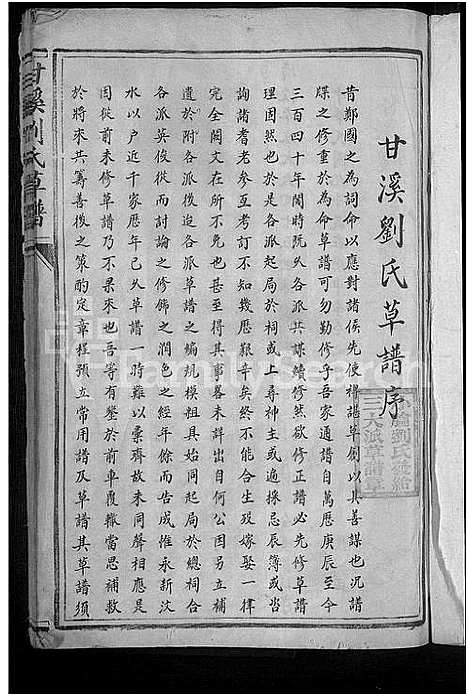 甘溪劉氏草譜序
昔鄭國之為詞命以應對諸侯先使裨諶草創以其善謀也況譜
牒之修重於為命草譜可勿勤修乎吾家通譜自萬歷庚辰至今
三百四十年閱時既久各派共謀續修然欲修正譜必先修草譜
理固然也於是各派起局於祠或上尋神主或遍揀忌辰簿或當
詢諸耆老參互考訂不知幾歷艱辛矣終不能合生歿嫁娶一律
完全闕文在所不免也甚至得其事畧未詳出自何公因另立補
遺於附各派後迨各派草譜之編規模粗具始同起局於總祠合
各派英俊從而討論之修飾之潤色之經年餘而告成惟永新汶
水以户近千家歷年已久草譜一時難以彙齊故未同聲相應是
因從前未修草譜乃不果來也吾等有鑒於前車覆轍當思補救
於將來共籌善後之策酌定章程預立常用譜及草譜其草譜須
甘溪劉氏草譜
FamilySearch